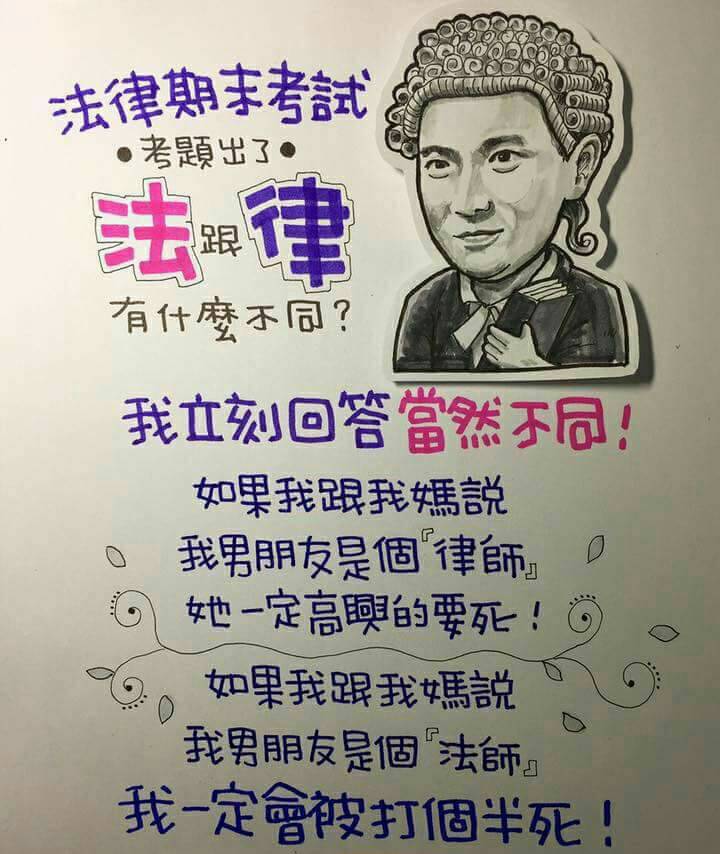 法律期末考試
•考題出了•
法跟律
有什麼不同?
我立刻回答當然不同!
如果我跟我媽說
我男朋友是個『律師』
她一定高興的要死!
如果我跟我媽說
我男朋友是個『法師』
我一定會被打個半死!